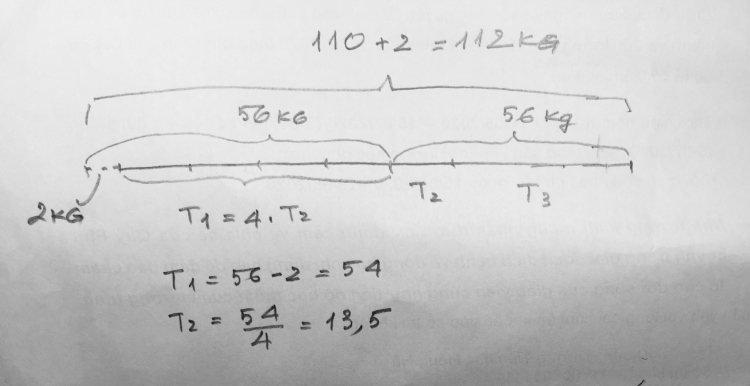 110 + 2 = 112 KG
56 KG 56 kg
2KG T2 T3
T1 = 4 . T2
T1 = 56 - 2 = 54
T2 = 54/4 = 13,5